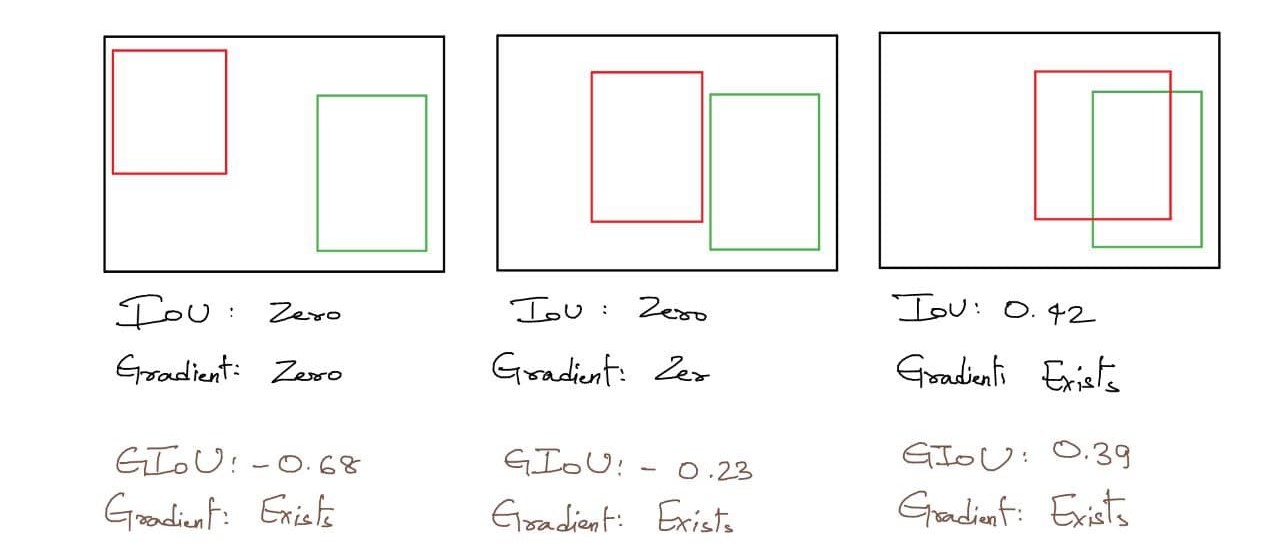 IoU : Zero
Gradient: Zero
GIoU: -0.68
Gradient: Exists
IoU : Zero
Gradient: Zer
GIoU: - 0.23
Gradient: Exists
IoU: 0.42
Gradient: Exists
GIoU: 0.39
Gradient: Exists